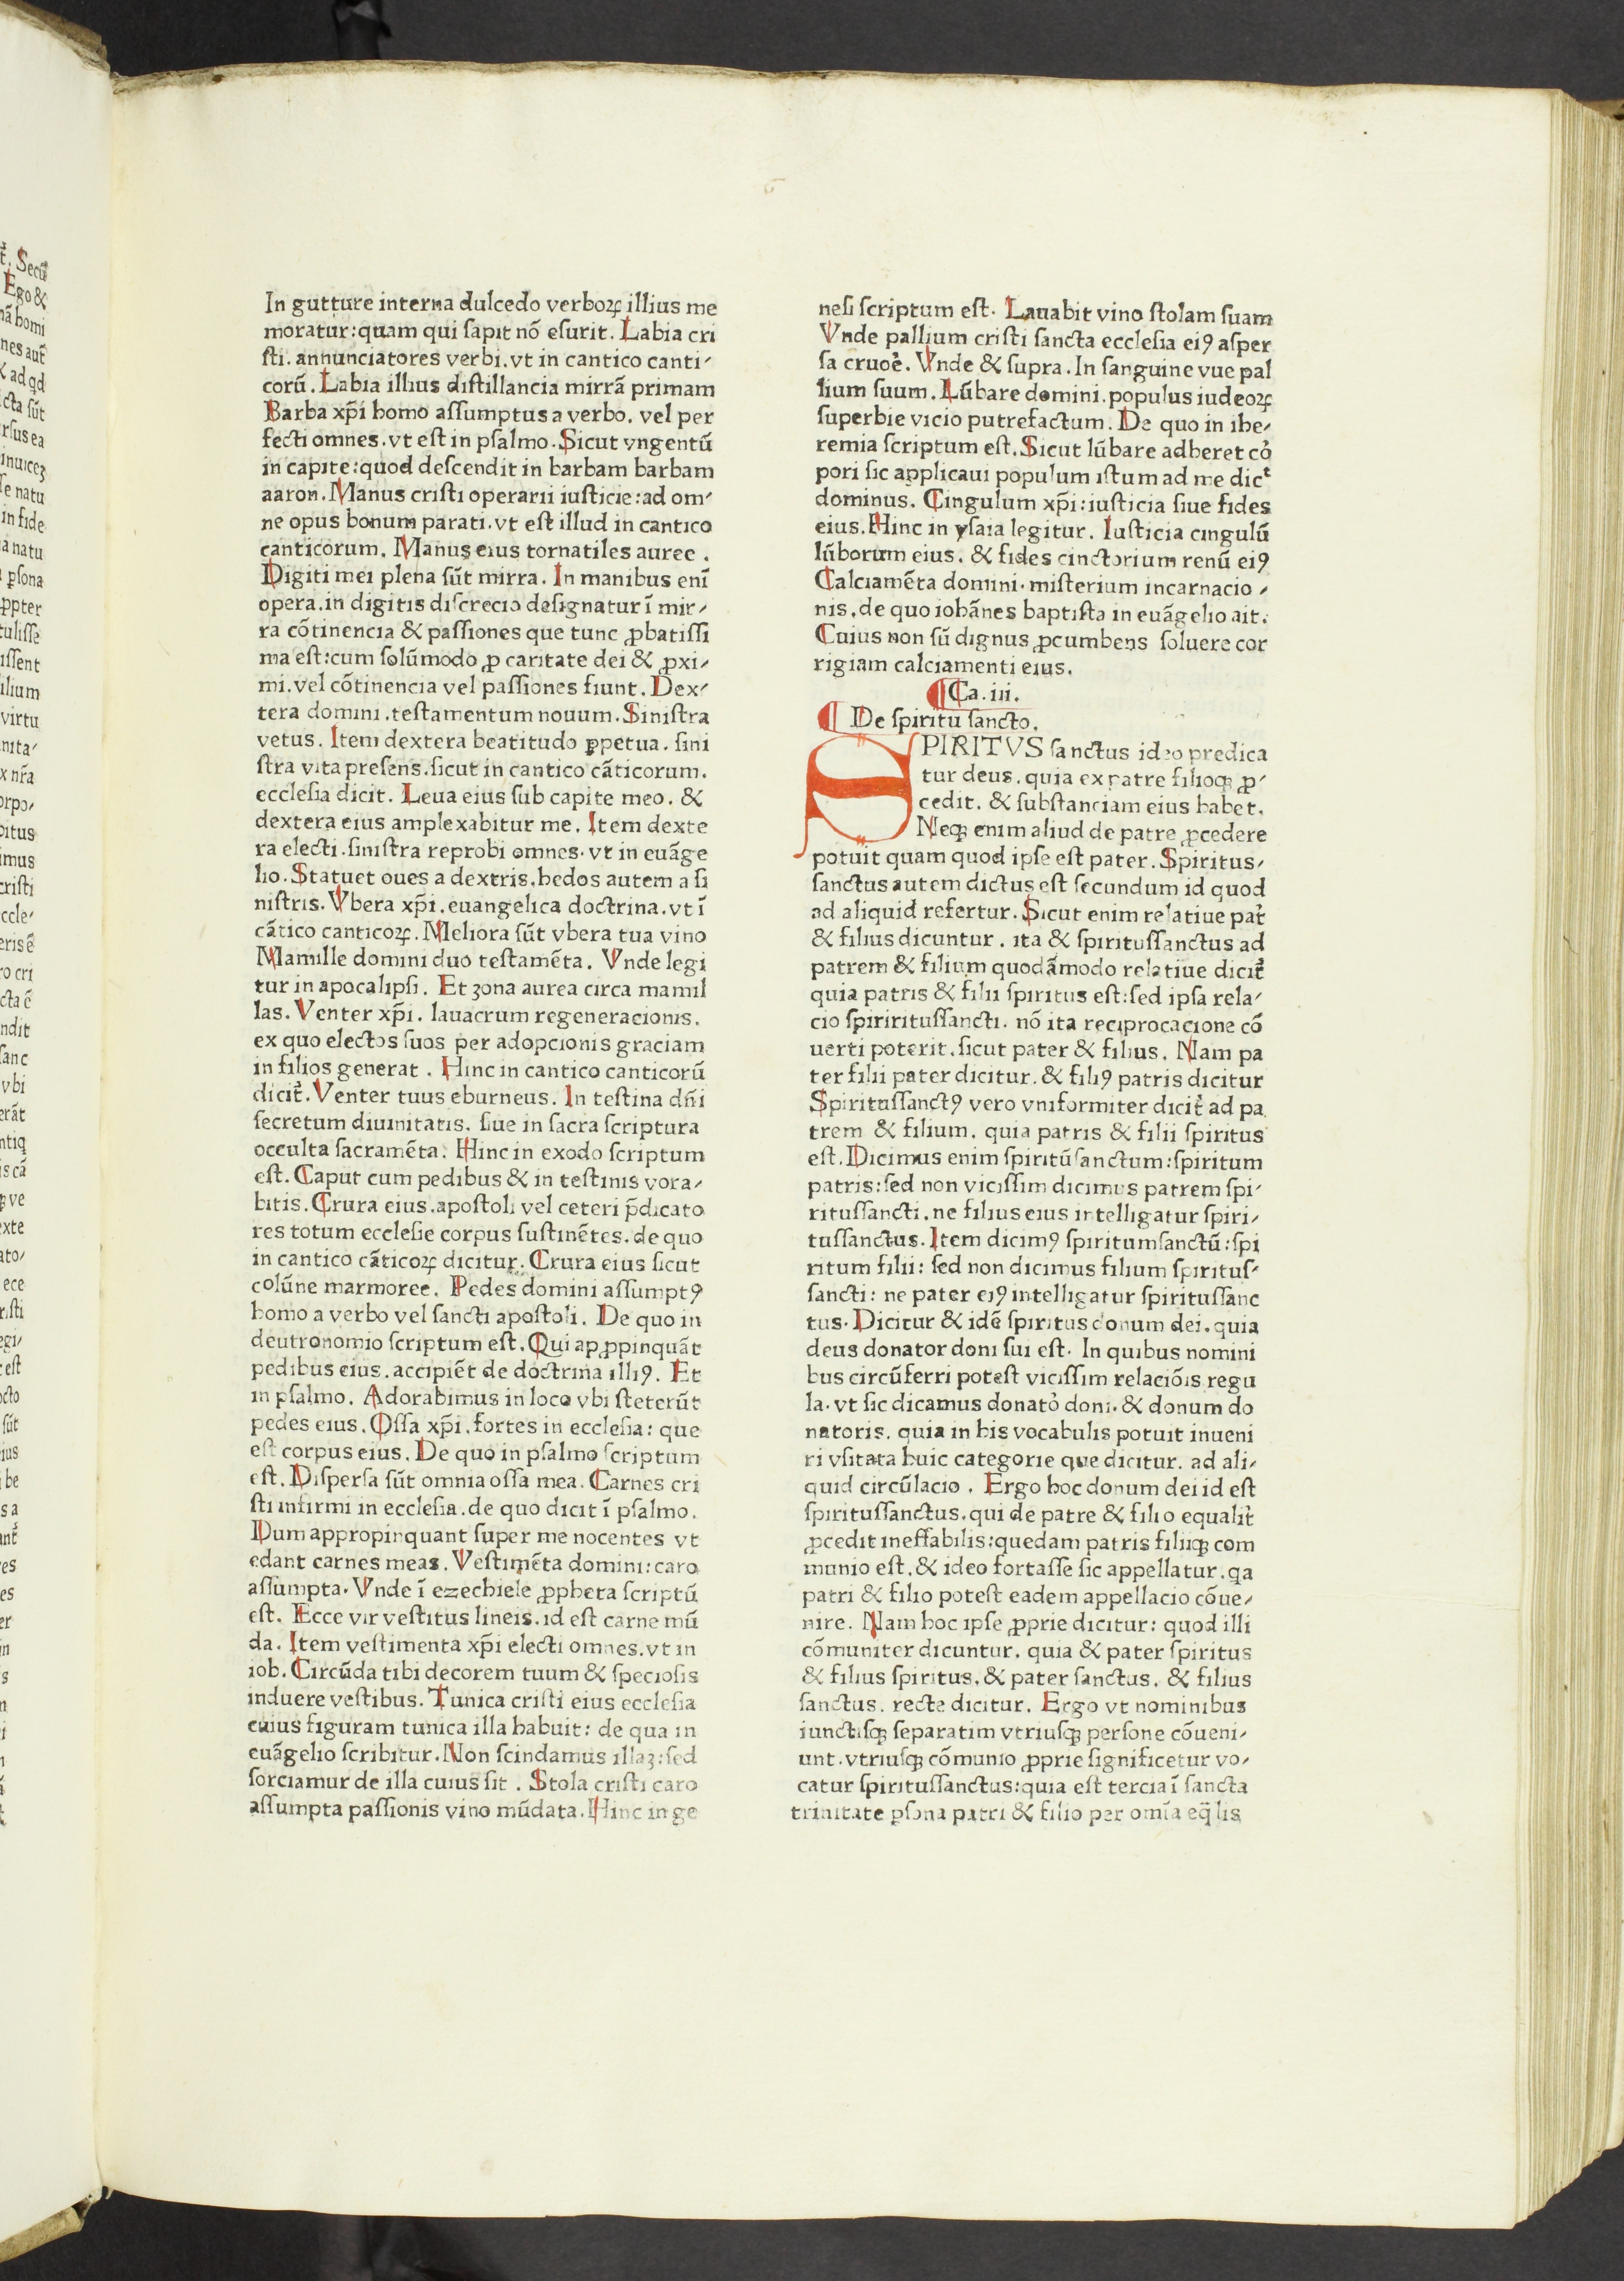 In gutture interna dulcedo verboꝝ illius me
moratur:quam qui ſapit nō eſurit. Labia cri
ſti. annunciatores verbi. vt in cantico canti⸗
corū. Labia illius diſtillancia mirrā primam
Barba xp̄i homo aſſumptus a verbo. vel per
fecti omnes. vt eſt in pſalmo. Sicut vngentū
in capite:quod deſcendit in barbam barbam
aaron. Manus criſti operarii iuſticie:ad om⸗
ne opus bonum parati. vt eſt illud in cantico
canticorum. Manus eius tornatiles auree.
Digiti mei plena ſūt mirra. In manibus enī
opera. in digitis diſcrecio deſignatur ī mir⸗
ra cōtinencia & paſſiones que tunc ꝓbatiſſi
ma eſt:cum ſolūmodo ꝓ caritate dei & ꝓxi⸗
mi. vel cōtinencia vel paſſiones fiunt. Dex⸗
tera domini. teſtamentum nouum. Siniſtra
vetus. Item dextera beatitudo ꝑpetua. ſini
ſtra vita preſens. ſicut in cantico cāticorum.
eccleſia dicit. Leua eius ſub capite meo. &
dextera eius amplexabitur me. Item dexte
ra electi. ſiniſtra reprobi omnes. vt in euāge
lio. Statuet oues a dextris. hedos autem a ſi
niſtris. Vbera xp̄i. euangelica doctrina. vt ī
cātico canticoꝝ. Meliora ſūt vbera tua vino
Mamille domini duo teſtamēta. Vnde legi
tur in apocalipſi. Et zona aurea circa mamil
las. Venter xp̄i. lauacrum regeneracionis.
ex quo electos ſuos per adopcionis graciam
in filios generat. Hinc in cantico canticorū
dicit᷑. Venter tuus eburneus. In teſtina dn̄i
ſecretum diuinitatis. ſue in ſacra ſcriptura
occulta ſacramēta. Hinc in exodo ſcriptum
eſt. Caput cum pedibus & in teſtinis vora⸗
bitis. Crura eius. apoſtoli vel ceteri p̄dicato
res totum eccleſie corpus ſuſtinētes. de quo
in cantico cāticoꝝ dicitur. Crura eius ſicut
colūne marmoree. Pedes domini aſſumptꝰ
homo a verbo vel ſancti apoſtoli. De quo in
deutronomio ſcriptum eſt. Qui apꝓpinquāt
pedibus eius. accipiēt de doctrina illiꝰ. Et
in pſalmo. Adorabimus in loco vbi ſteterūt
pedes eius. Oſſa xp̄i. fortes in eccleſia: que
eſt corpus eius. De quo in pſalmo ſcriptum
eſt. Diſperſa ſūt omnia oſſa mea. Carnes cri
ſti infirmi in eccleſia. de quo dicit ī pſalmo.
Dum appropinquant ſuper me nocentes vt
edant carnes meas. Veſtimēta domini: caro
aſſumpta. Vnde ī ezechiele ꝓpheta ſcriptū
eſt. Ecce vir veſtitus lineis. id eſt carne mū
da. Item veſtimenta xp̄i electi omnes. vt in
iob. Circūda tibi decorem tuum & ſpecioſis
induere veſtibus. Tunica criſti eius eccleſia
cuius figuram tunica illa habuit: de qua in
euāgelio ſcribitur. Non ſcindamus illaꝫ:ſed
ſorciamur de illa cuius ſit. Stola criſti caro
aſſumpta paſſionis vino mūdata. Hinc in ge
neſi ſcriptum eſt. Lauabit vino ſtolam ſuam
Vnde pallium criſti ſancta eccleſia eiꝰ aſper
ſa cruoē. Vnde & ſupra. In ſanguine vue pal
lium ſuum. Lūbare domini. populus iudeoꝝ
ſuperbie vicio putrefactum. De quo in ihe⸗
remia ſcriptum eſt. Sicut lūbare adheret co᷑
pori ſic applicaui populum iſtum ad me dicᵗ
dominus. Cingulum xp̄i:iuſticia ſiue fides
eius. Hinc in yſaia legitur. Iuſticia cingulū
lūborum eius. & fides cinctorium renū eiꝰ
Calciamēta domini. miſterium incarnacio⸗
nis. de quo iohānes baptiſta in euāgelio ait.
Cuius non ſū dignus ꝓcumbens ſoluere cor
rigiam calciamenti eius.
¶Ca. iii.
¶ De ſpiritu ſancto.
SPIRITVS ſanctus ideo predica
tur deus. quia ex patre filioqꝫ ꝓ⸗
cedit. & ſubſtanciam eius habet.
Neqꝫ enim aliud de patre ꝓcedere
potuit quam quod ipſe eſt pater. Spiritus⸗
ſanctus autem dictus eſt ſecundum id quod
ad aliquid refertur. Sicut enim relatiue pat᷑
& filius dicuntur. ita & ſpirituſſanctus ad
patrem & filium quodāmodo relatiue dicit᷑
quia patris & filii ſpiritus eſt:ſed ipſa rela⸗
cio ſpirirituſſancti. nō ita reciprocacione cō
uerti poterit. ſicut pater & filius. Nam pa
ter filii pater dicitur. & filiꝰ patris dicitur
Spirituſſanctꝰ vero vniformiter dicit᷑ ad pa
trem & filium. quia patris & filii ſpiritus
eſt. Dicimus enim ſpiritūſanctum:ſpiritum
patris:ſed non viciſſim dicimus patrem ſpi⸗
rituſſancti. ne filius eius intelligatur ſpiri⸗
tuſſanctus. Item dicimꝰ ſpiritumſanctū:ſpi
ritum filii: ſed non dicimus filium ſpirituſ⸗
ſancti: ne pater eiꝰ intelligatur ſpirituſſanc
tus. Dicitur & idē ſpiritus donum dei. quia
deus donator doni ſui eſt. In quibus nomini
bus circūferri poteſt viciſſim relaciōis regu
la. vt ſic dicamus donato᷑ doni. & donum do
natoris. quia in his vocabulis potuit inueni
ri vſitata huic categorie que dicitur. ad ali⸗
quid circūlacio. Ergo hoc donum dei id eſt
ſpirituſſanctus. qui de patre & filio equalit᷑
ꝓcedit ineffabilis:quedam patris filiiqꝫ com
munio eſt. & ideo fortaſſe ſic appellatur. qa
patri & filio poteſt eadem appellacio cōue⸗
nire. Nam hoc ipſe ꝓprie dicitur: quod illi
cōmuniter dicuntur. quia & pater ſpiritus
& filius ſpiritus. & pater ſanctus. & filius
ſanctus. recte dicitur. Ergo vt nominibus
iunctiſqꝫ ſeparatim vtriuſqꝫ perſone cōueni⸗
unt. vtriuſqꝫ cōmunio ꝓprie ſignificetur vo⸗
catur ſpirituſſanctus:quia eſt tercia ī ſancta
trinitate ꝑſona patri & filio per omīa eq̄lis